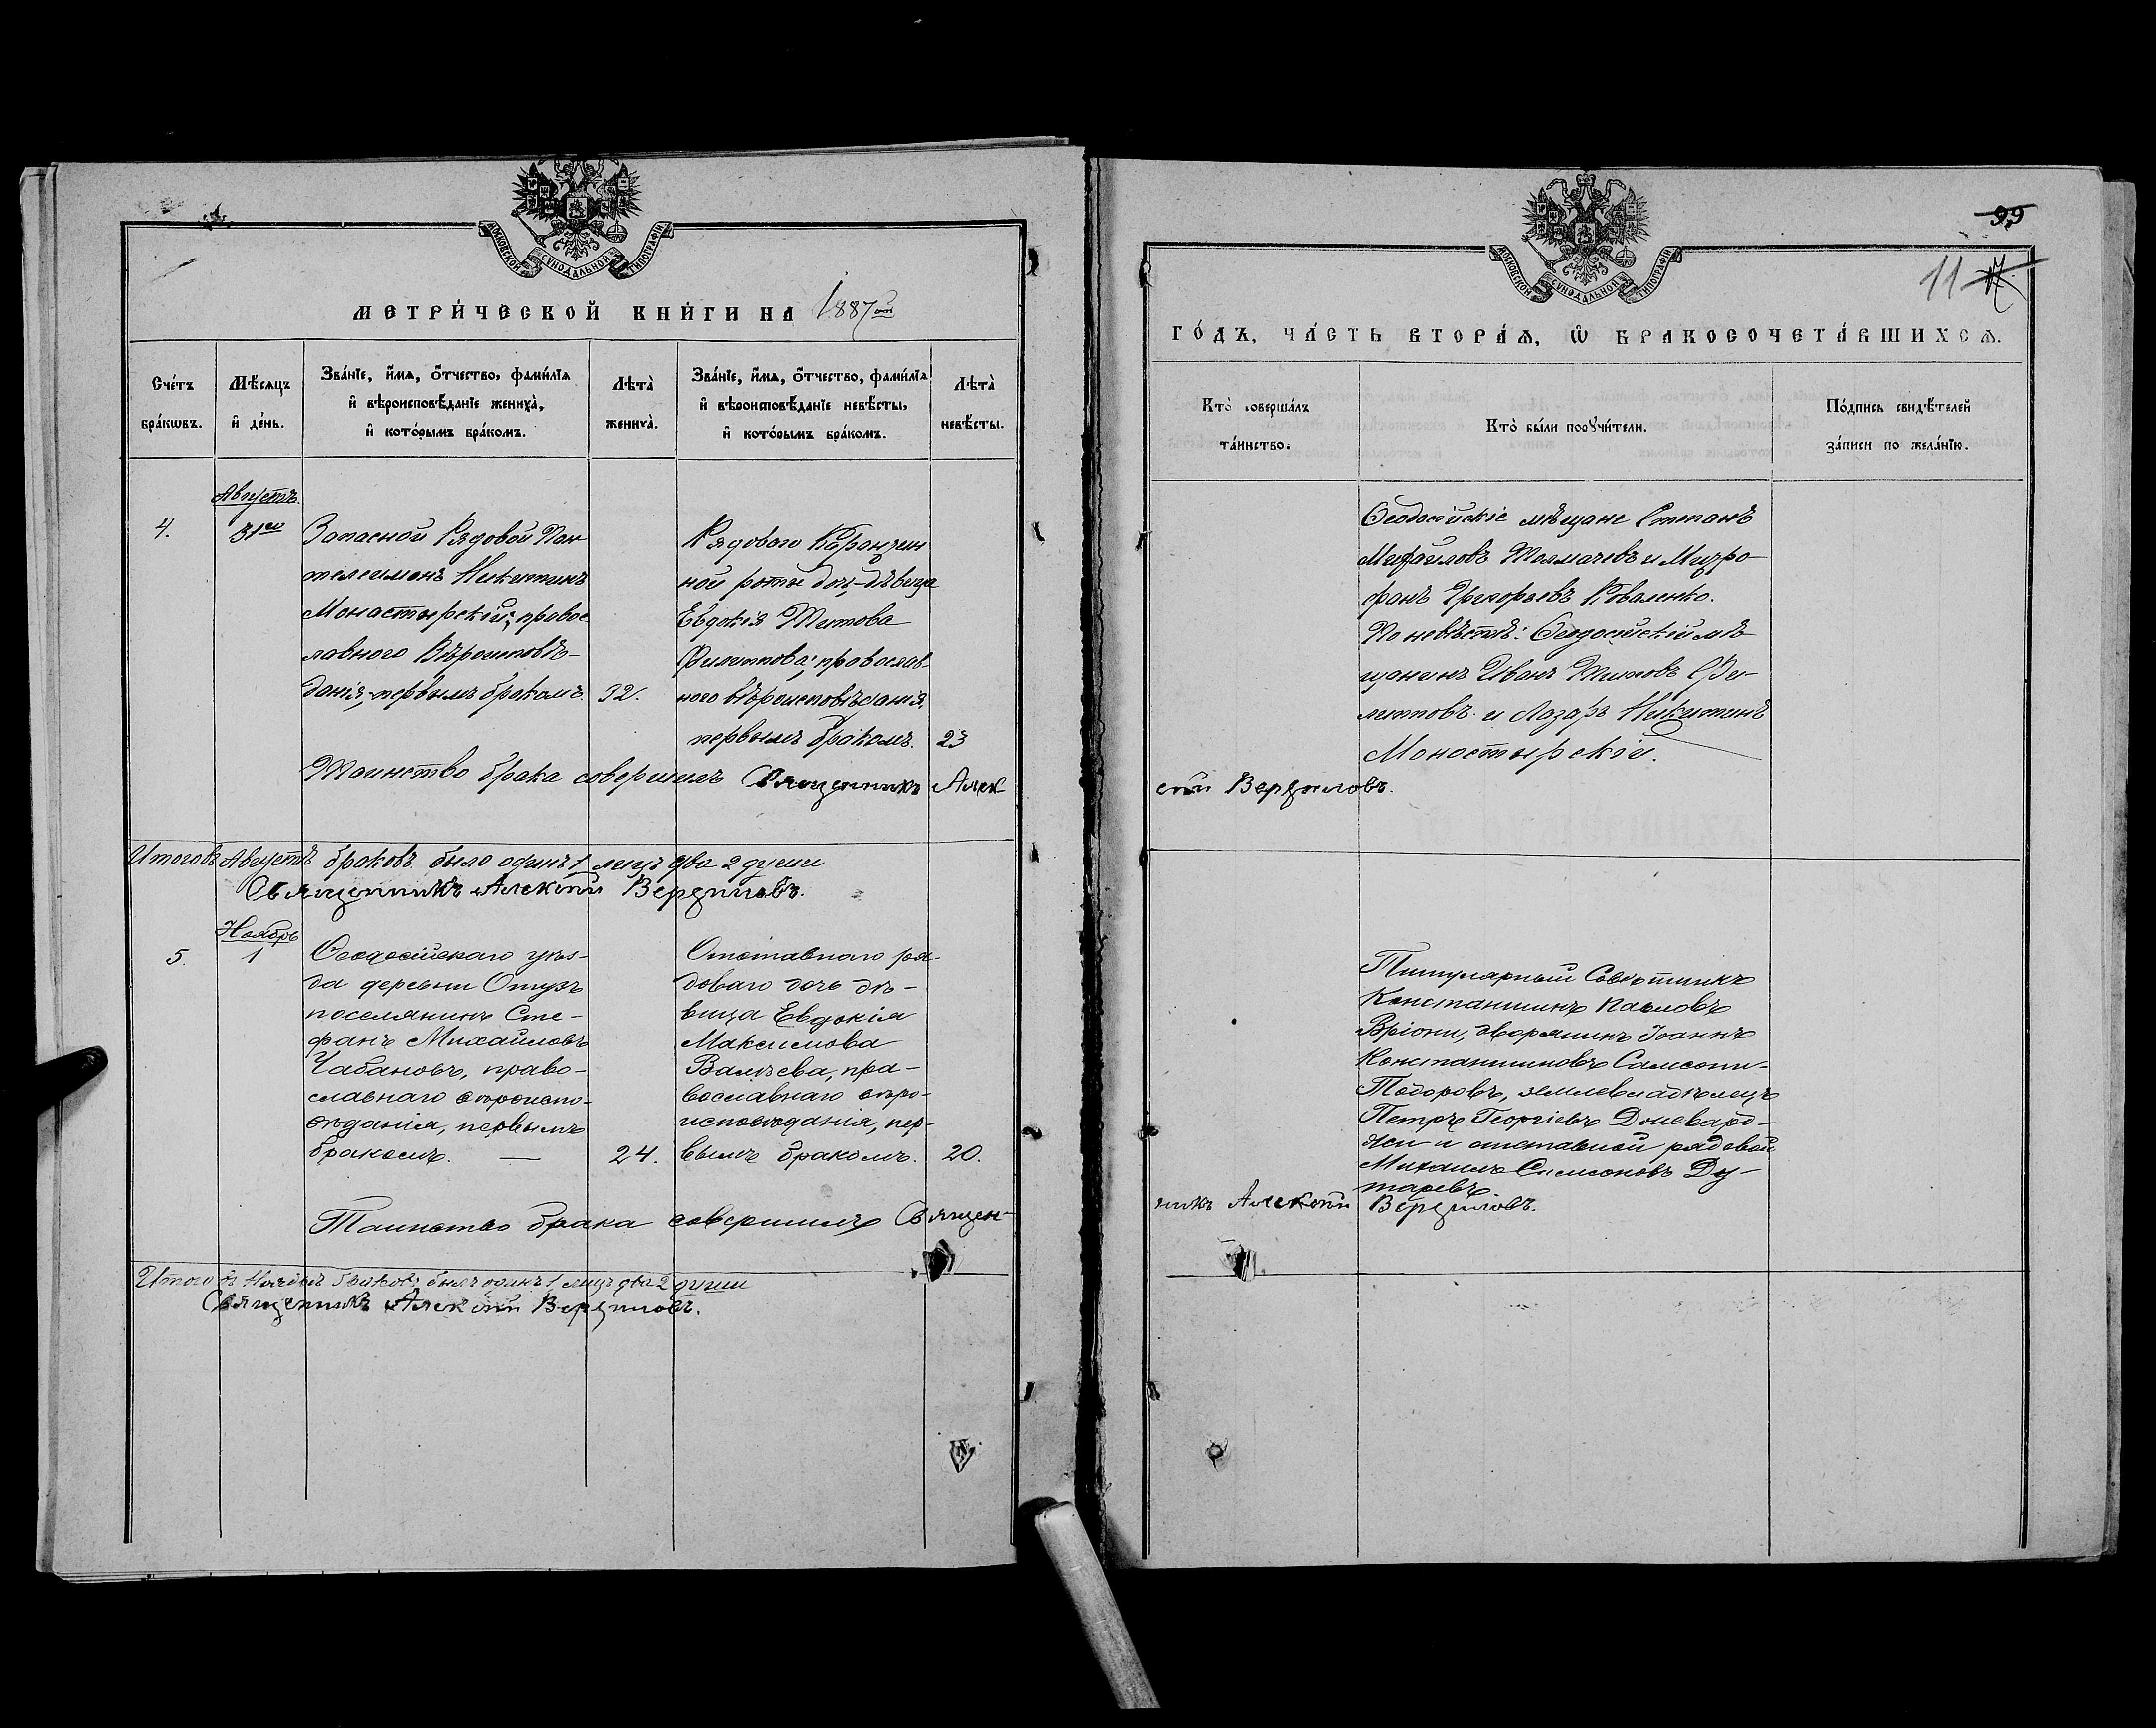 МОСКОВСКОЙ СѴНОДАЛЬНОЙ ТИПОГРАФІИ
МЕТРИ́ЧЕСКОЙ КНИ́ГИ НА 1887ой
Сче́тъ бра́кѡвъ.
Мѣ́сяцъ и҆ де́нь.
Зва́нїе, и҆́мѧ, ѻ҆́тчество, фами́лїѧ и҆ вѣроисповѣ́данїе жениха̀, и҆ кото́рымъ бра́комъ.
Лѣта̀ жениха̀.
Зва́нїе, и҆́мѧ, ѻ҆́тчество, фами́лїѧ и҆ вѣроисповѣ́данїе невѣ́сты, и҆ кото́рымъ бра́комъ.
Лѣта̀ невѣ́сты.
Августъ.
4.
31го
Запасной Рядовой Пан
телеимонъ Никитинъ
Монастырскій; правос
лавного Вѣроисповѣ-
данія, первымъ бракомъ.
32.
Рядового Карантин
ной роты дочь-дѣвица
Евдокія Титова
Филиппова; православ
ного вѣроисповѣданія,
первымъ бракомъ.
23
Таинство брака совершилъ Священникъ Алек
Итого въ Августѣ браковъ было одинъ 1, лицъ два 2 души
Священникъ Алексѣй Верзиловъ.
Ноябрь
5.
1
Ѳеодосійскаго уѣз-
да деревни Отузъ
поселянинъ Сте-
фанъ Михайловъ
Чабановъ, право-
славнаго вѣроиспо-
вѣданія, первымъ
бракомъ. —
24.
Отставнаго ря-
доваго дочь дѣ-
вица Евдокія
Максимова
Вальева, пра-
вославнаго вѣро-
исповѣданія, пер-
вымъ бракомъ.
20.
Таинство брака совершилъ Священ-
Итого въ Ноябрѣ браковъ былъ одинъ 1 лицъ два 2 души
Священникъ Алексѣй Верзиловъ.
99
11
МОСКОВСКОЙ СѴНОДАЛЬНОЙ ТИПОГРАФІИ
ГО́ДЪ, ЧА́СТЬ ВТОРА́Ѧ, Ѽ БРАКОСОЧЕТА́ВШИХСѦ.
Кто̀ соверша́лъ та́инство.
Кто̀ бы́ли порꙋчи́тели.
По́дпись свидѣ́телей за́писи по жела́нїю.
Ѳеодосійскіе мѣщане Степанъ
Михайловъ Толмачевъ и Митро-
фанъ Григорьевъ Коваленко.
По невѣстѣ: Ѳеодосійскій мѣ
щанинъ Иванъ Титовъ Фи-
липповъ и Лазарь Никитинъ
Монастырскій.
сѣй Верзиловъ.
Титулярный Совѣтникъ
Константинъ Павловъ
Вріони, дворянинъ Іоаннъ
Константиновъ Самсони-
Тодоровъ, землевладѣлецъ
Петръ Георгіевъ
и отставной рядовой
Михаилъ Симсоновъ Ду-
таревъ
никъ Алексѣй Верзиловъ.